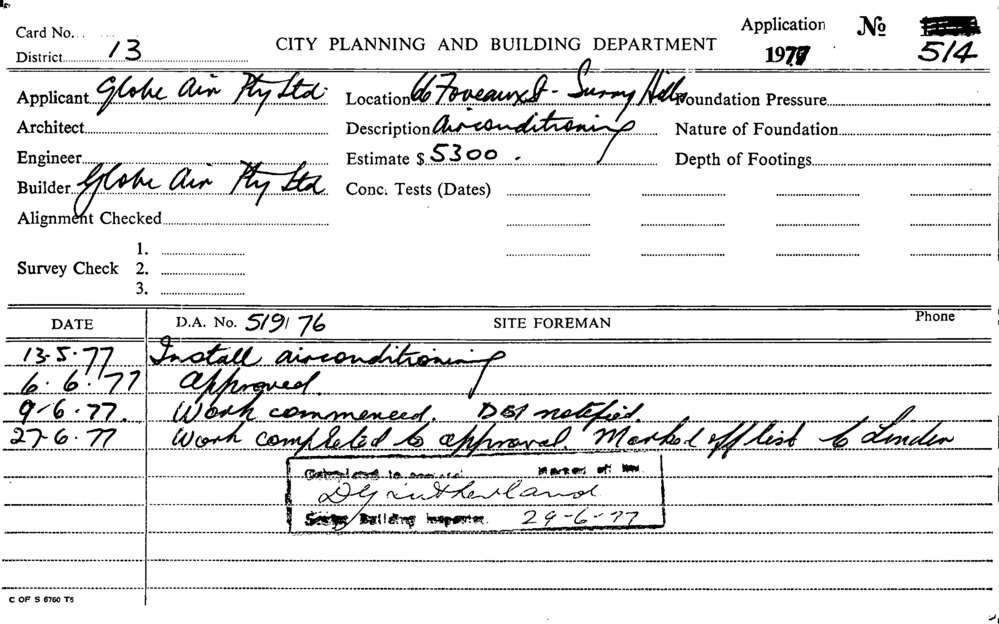 Card No.
Application No
District 13
CITY PLANNING AND BUILDING DEPARTMENT
1977
514
Applicant Globe Air Pty Ltd.
Location 66 Foveaux St - Surry Hills
Foundation Pressure
Architect
Description Airconditioning
Nature of Foundation
Engineer
Estimate $ 5300.
Depth of Footings
Builder Globe Air Pty Ltd
Conc. Tests (Dates)
Alignment Checked
Survey Check
1.
2.
3.
DATE
D.A. No. 519/76
SITE FOREMAN
Phone
13-5-77 Install airconditioning
6.6.77 Approved.
9-6-77. Work commenced. notified.
27-6-77 Work completed to approval. Marked off list to Linden
Completed to approval. Marked off
Building Inspector. 29-6-77
C OF S 6760 T5